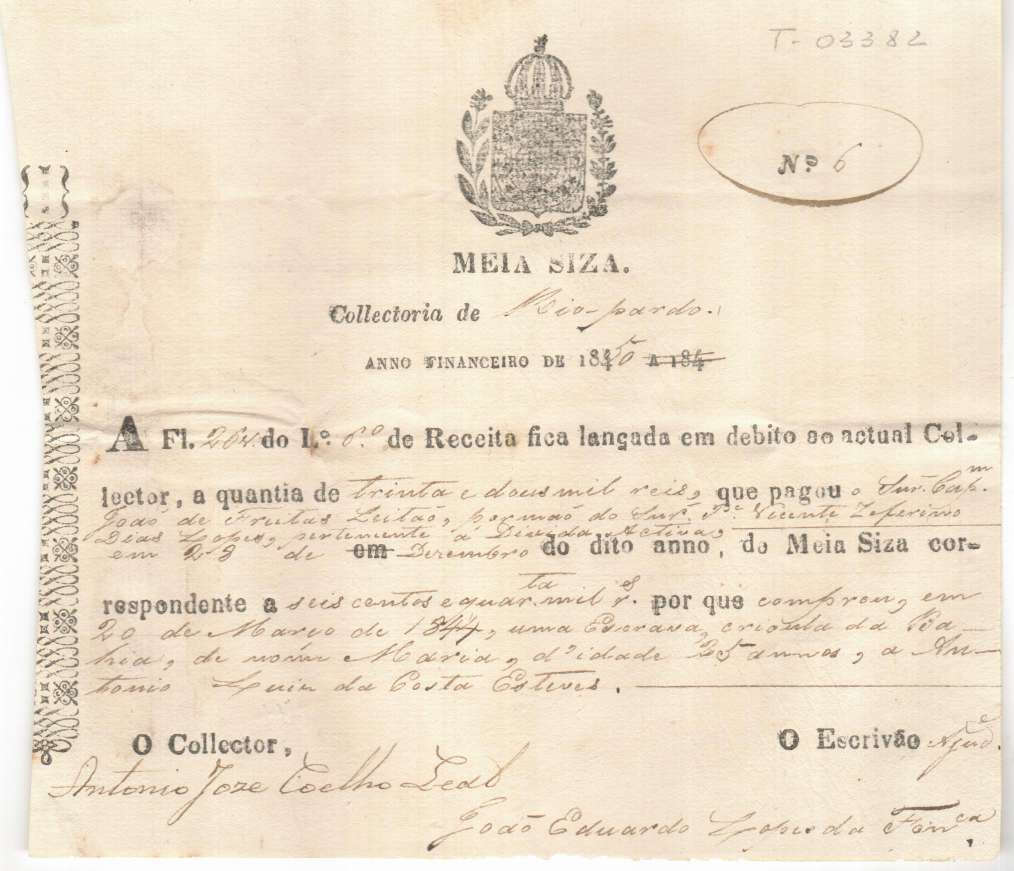 T-03382
Nº 6
MEIA SIZA.
Collectoria de Rio-pardo.
ANNO FINANCEIRO DE 1850 A 184
A Fl. 26v. do L.º 6.º de Receita fica lançada em debito ao actual Col-
lector, a quantia de trinta e dous mil reis, que pagou o Snr. Cap.m
João de Freitas Leitão, por mão do Snr. Vicente Zeferino
Dias Lopes, pertencente a Divida Activa,
em 23 de em Dezembro do dito anno, de Meia Siza cor-
respondente a seis centos e quar.ta mil r.s por que comprou, em
20 de Março de 1844, uma Escrava, crioula da Ba-
hia, de nome Maria, d'idade 25 annos, a An-
tonio Luiz da Costa Esteves.
O Collector,
O Escrivão Ajud.e
Antonio Joze Coelho Leal
João Eduardo Lopes da Fon.ca